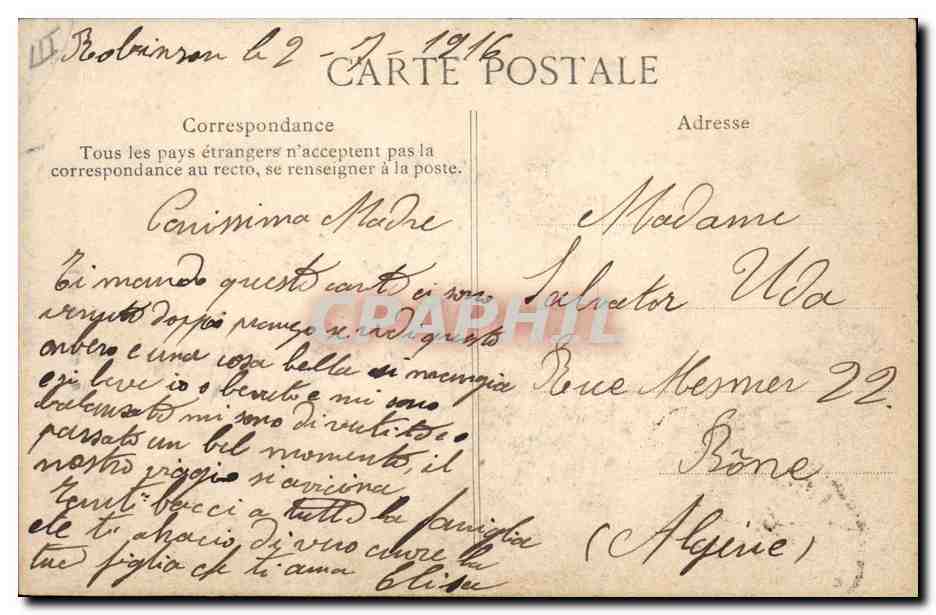 III Robinson le 2 - 7 - 1916
CARTE POSTALE
Correspondance
Tous les pays étrangers n'acceptent pas la
correspondance au recto, se renseigner à la poste.
Carissima Madre
Ti mando questo carto ci sono
venuto doppo pranzo vedi questo
arbero e una cosa bella si mangia
e si beve io o bevuto e mi sono
mi sono divertito e o
passato un bel momento, il
nostro viggio si avicina
Tenti bacci a tutto la famiglia
e te ti abracio di vero cuore la
tue figlia che ti ama Elisa
Adresse
Madame
Salvator Uda
Rue Mesmer 22.
Bône
(Algérie)
CPAPHIL